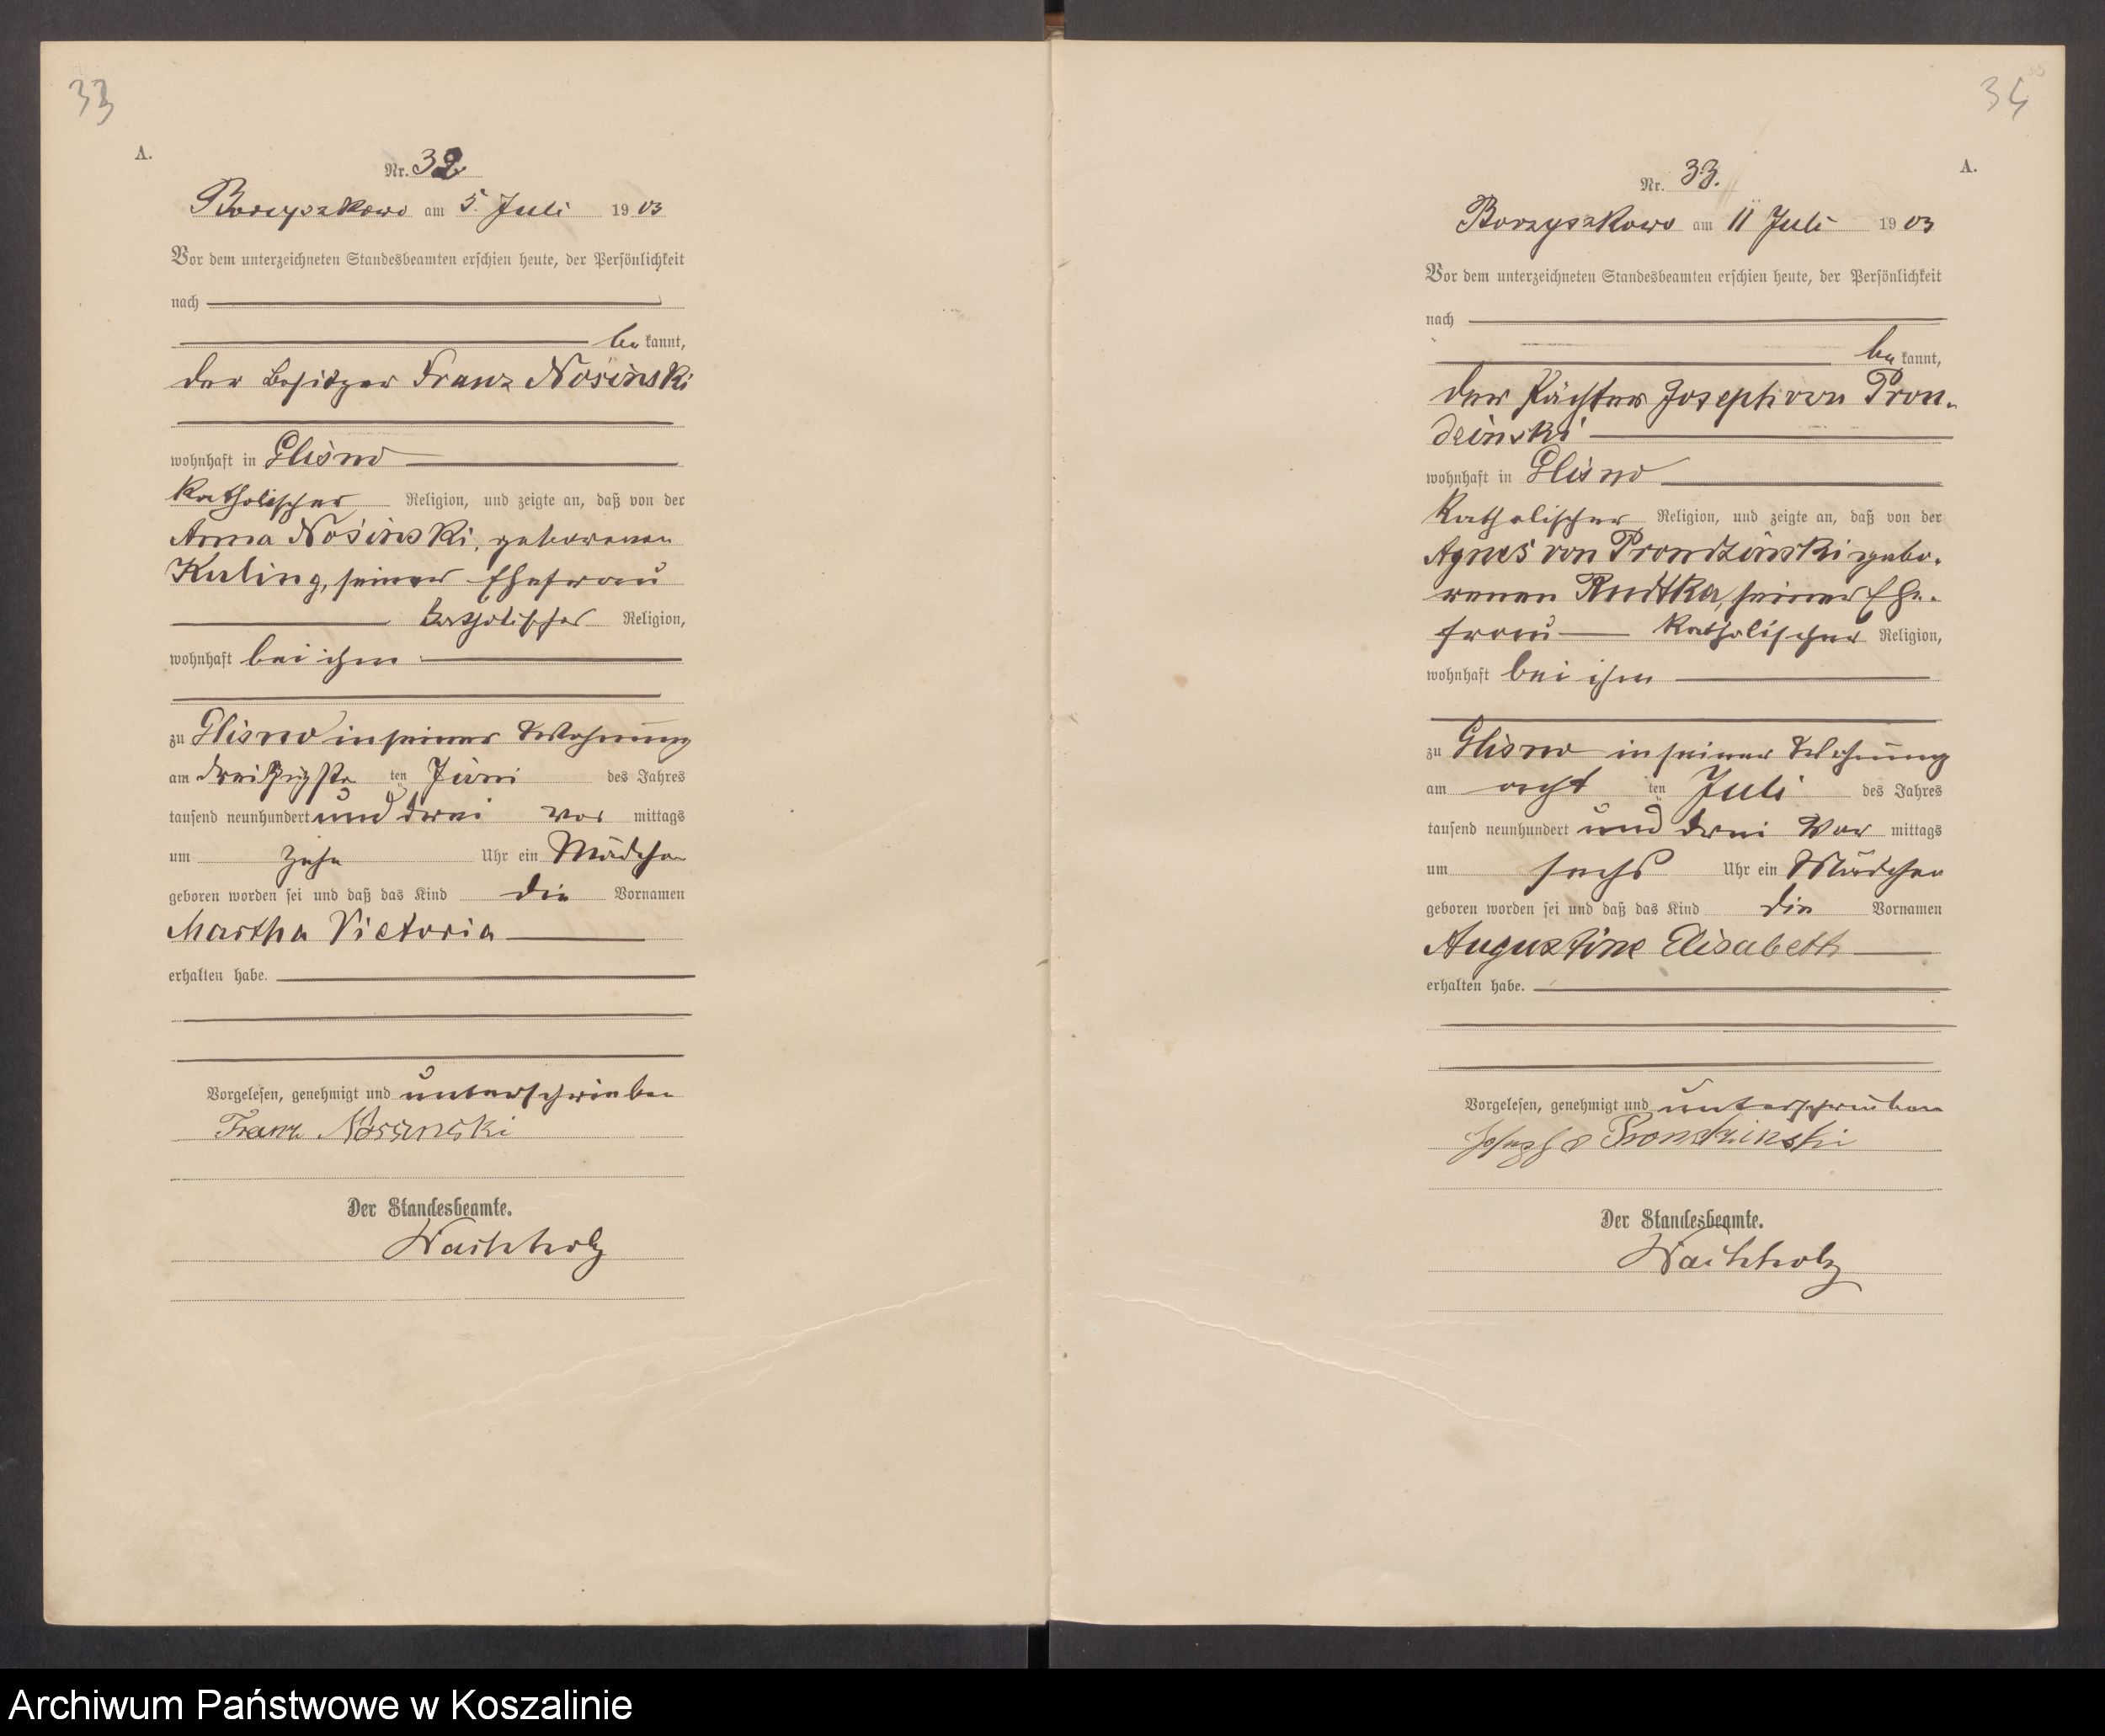 33
A.
Nr. 32
Borzyszkowo am 5. Juli 1903
Vor dem unterzeichneten Standesbeamten erschien heute, der Persönlichkeit
nach
be kannt,
der Besitzer Franz Nosinski
wohnhaft in Glisno
katholischer Religion, und zeigte an, daß von der
Anna Nosinski, geborenen
Kuling, seiner Ehefrau
katholischer Religion,
wohnhaft bei ihm
zu Glisno in seiner Wohnung
am dreißigsten ten Juni des Jahres
tausend neunhundert und drei vor mittags
um zehn Uhr ein Mädchen
geboren worden sei und daß das Kind die Vornamen
Martha Victoria
erhalten habe.
Vorgelesen, genehmigt und unterschrieben
Franz Nosinski
Der Standesbeamte.
Wachholz
34
A.
Nr. 33.
Borzyszkowo am 11 Juli 1903
Vor dem unterzeichneten Standesbeamten erschien heute, der Persönlichkeit
nach
be kannt,
der Pächter Joseph von Pron-
dzinski
wohnhaft in Glisno
katholischer Religion, und zeigte an, daß von der
Agnes von Prondzinski gebo-
renen Rudtka, seiner Ehe-
frau katholischer Religion,
wohnhaft bei ihm
zu Glisno in seiner Wohnung
am acht ten Juli des Jahres
tausend neunhundert und drei Vor mittags
um sechs Uhr ein Mädchen
geboren worden sei und daß das Kind die Vornamen
Augustine Elisabeth
erhalten habe.
Vorgelesen, genehmigt und unterschrieben
Joseph v Prondzinski
Der Standesbeamte.
Wachholz
Archiwum Państwowe w Koszalinie